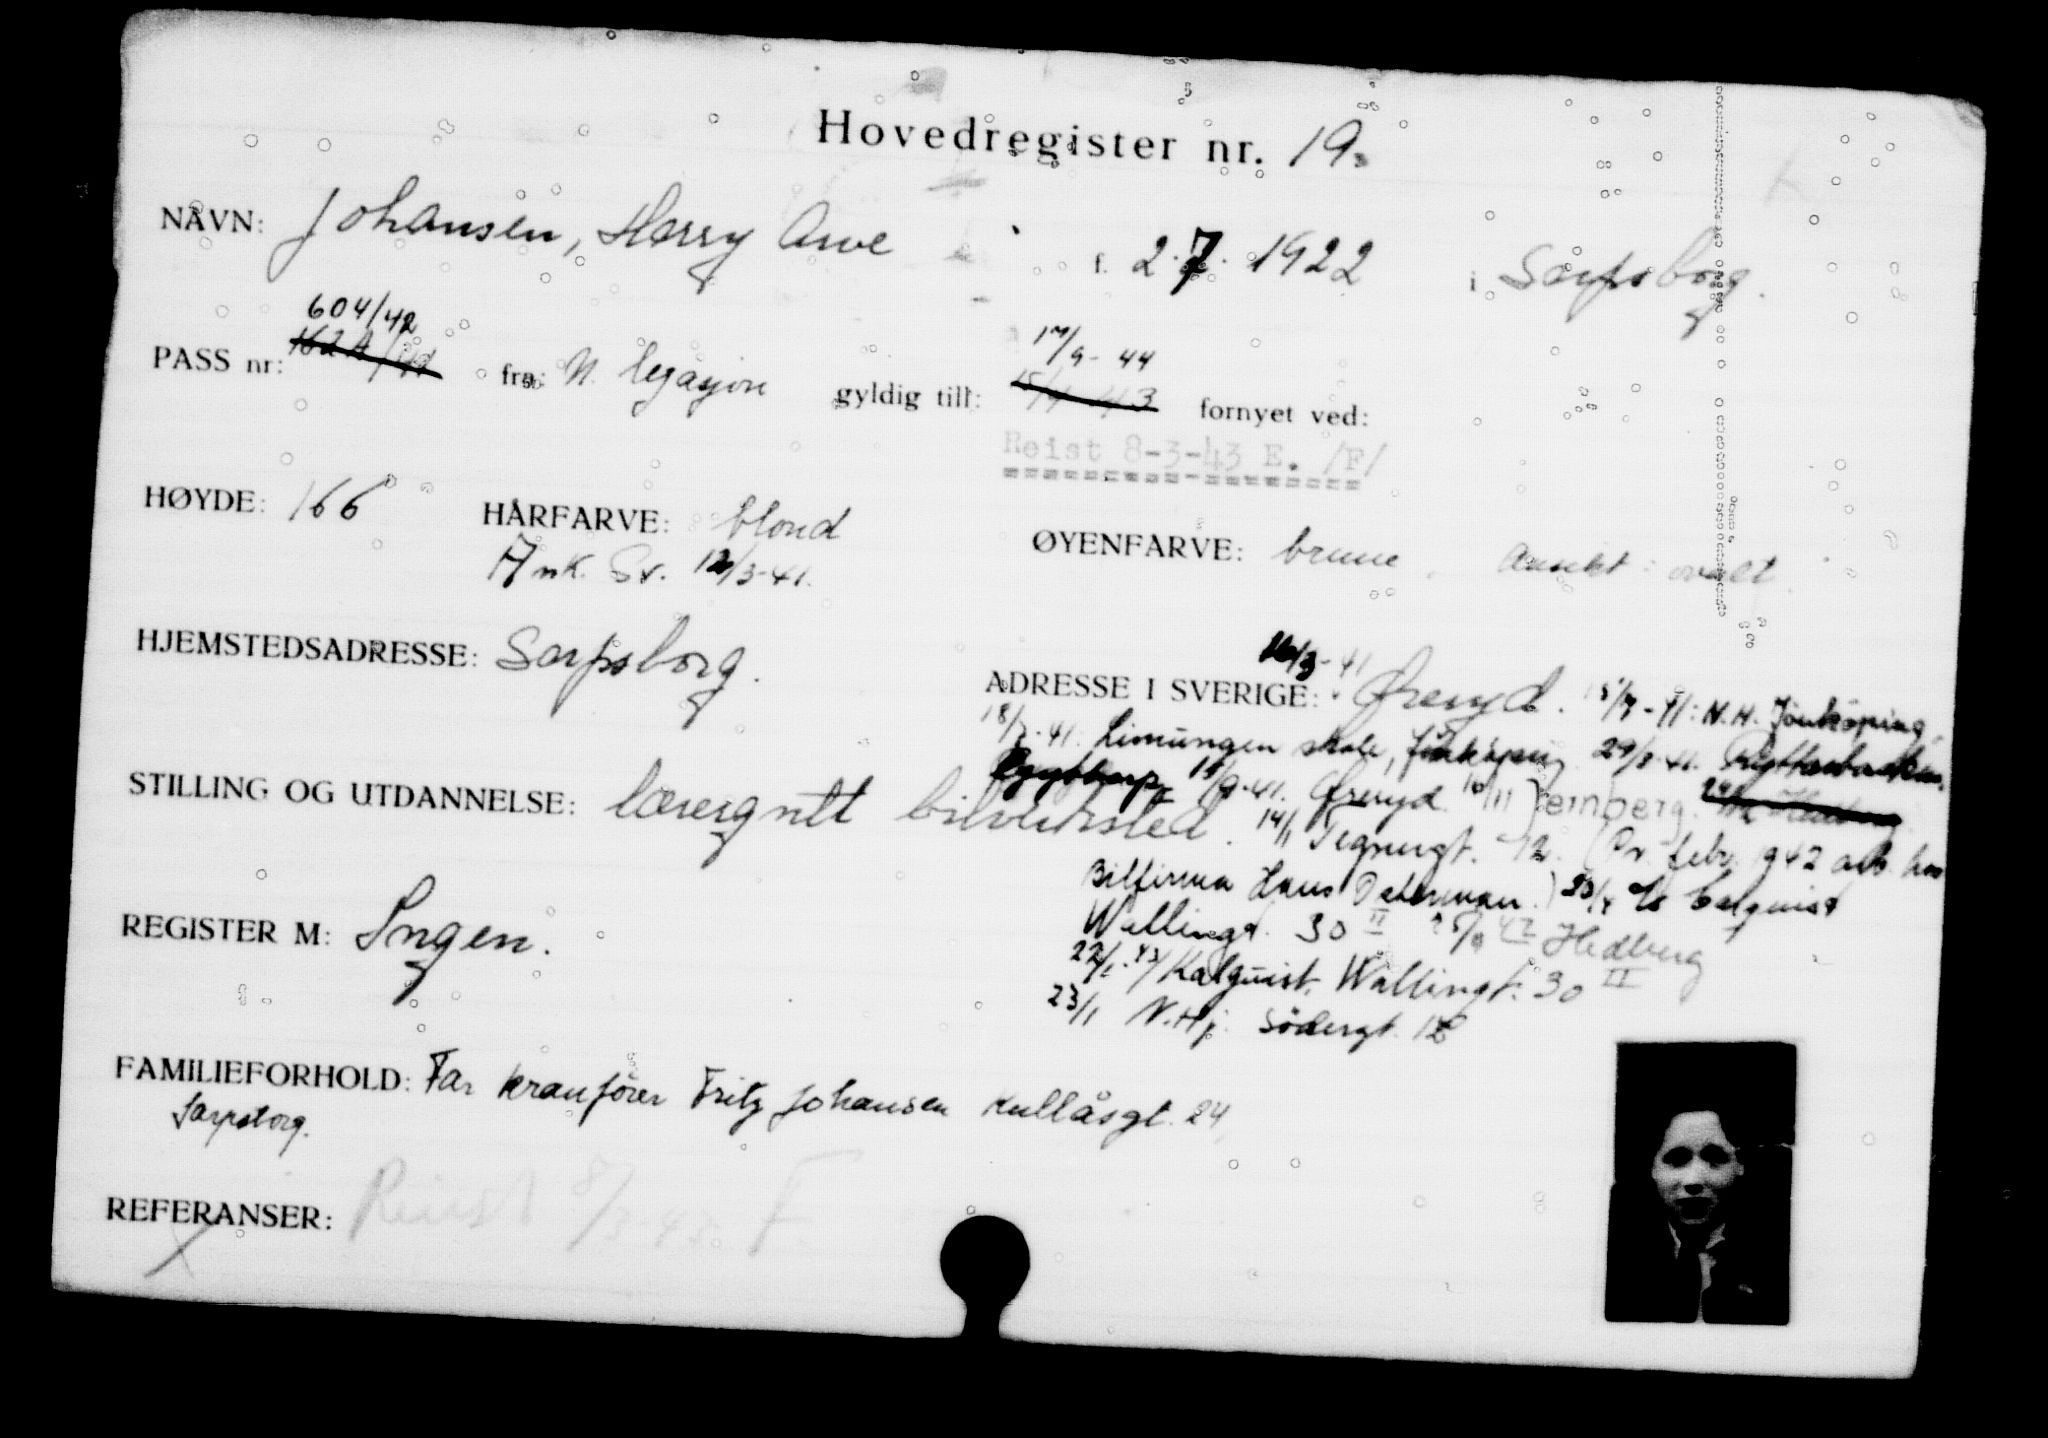 Hovedregister nr. 19.
NAVN: Johansen, Harry Arve f. 2.7.1922 i Sarpsborg.
604/42 17/9-44
PASS nr: fra: N. legasjon gyldig till: fornyet ved:
Reist 8-3-43 E. /F/
HØYDE: 166 HÅRFARVE: blond ØYENFARVE: brune. Ansikt: ovalt.
Ank. Sv. 12/3-41.
HJEMSTEDSADRESSE: Sarpsborg.
ADRESSE I SVERIGE: -41 Øreryd. 15/7-41: N.H. Jönköping,
18/7-41. skole, Jönköping 29/8-41.
-41. Øreryd. 10/11
STILLING OG UTDANNELSE: læregutt bilverksted.
14/1 Tegnergt. 12. (Pr. febr. 1942 arb. hos
Bilfirma Hans Osterman.) 23/4 c/o Calquist
Wallingt. 30 II 42 Hedberg
22/1-43/ Kalquist, Wallingt. 30 II
23/1 N.Hj. Södergt.
REGISTER M: Ingen.
FAMILIEFORHOLD: Far kranfører Fritz Johansen Kullåsgt. 24,
Sarpsborg.
REFERANSER: Reist 8/3-43. F.